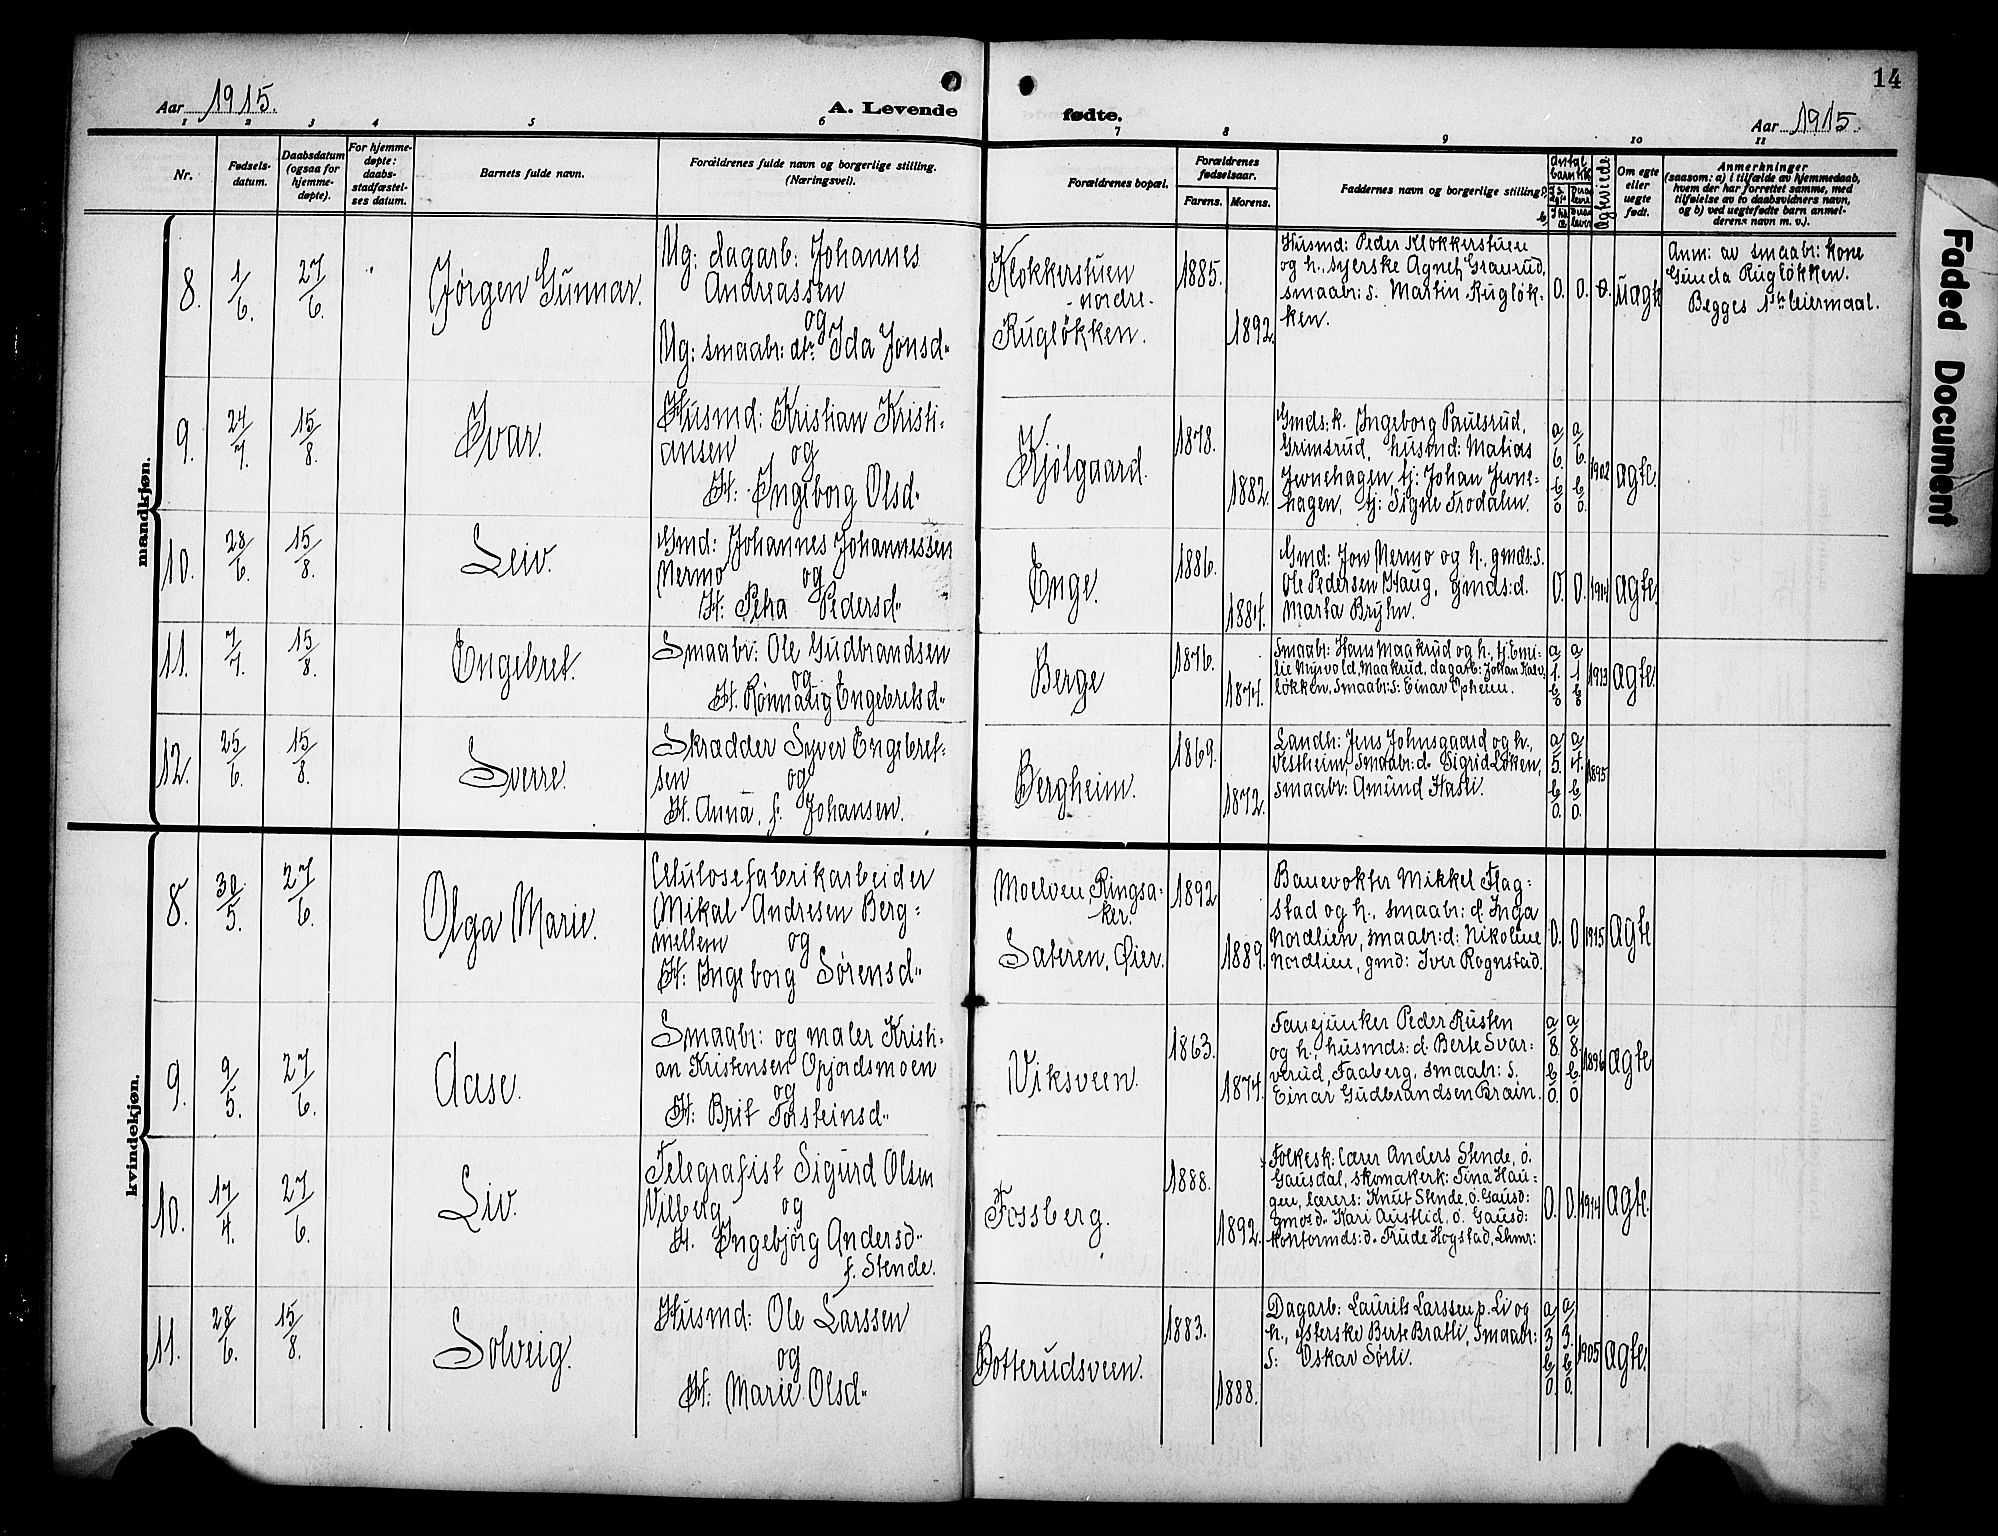 14
Aar 1915.
A. Levende
fødte.
Aar 1915.
1 2 3 4 5 6 7 8 9 10 11
Nr.
Fødsels-
datum.
Daabsdatum
(ogsaa for
hjemme-
døpte).
For hjemme-
døpte:
daabs-
stadfæstel-
ses datum.
Barnets fulde navn.
Forældrenes fulde navn og borgerlige stilling.
(Næringsvei).
Forældrenes bopæl.
Forældrenes
fødselsaar.
Farens. Morens.
Faddernes navn og borgerlige stilling.
Antal
barn
Ægtviede
Om egte
eller
uegte
født.
Anmerkninger
(saasom: a) i tilfælde av hjemmedaab,
hvem der har forrettet samme, med
tilføielse av to daabsvidners navn,
og b) ved uegtefødte barn anmel-
derens navn m. v.).
mandkjøn.
8. 1/6. 27/6. Jørgen Gunnar.
Ug: dagarb: Johannes
Andreassen
og
Ug: smaabr: dtr Ida Jonsd.
Klokkerstuen
nordre.
Rugløkken.
1885.
1892.
Husmd: Peder Klokkerstuen
og h., syerske Agnet Graurud,
smaabr: s. Martin Rugløk-
ken.
0. 0. 0. uagte
Anm: av smaabr: kone
Gunda Rugløkken.
Begges 1ste leiermaal.
9. 24/7. 15/8. Ivar.
Husmd: Kristian Kristi-
ansen og
H: Ingeborg Olsd.
Kjølgaard.
1878.
1882.
Gmds: k. Ingeborg Paulsrud,
Grimsrud, husmd: Matias
Jevnehagen, tj: Johan Jevne-
hagen, tj: Signe Frodalen.
a/6. b/0 a/6. b/0 1902 agte.
10. 28/6. 15/8. Leiv.
Gmd: Johannes Johannessen
Mermo og
H: Petra Pedersd.
Enge.
1886.
1884.
Gmd: Jon Mermo og h., gmds: s.
Ole Pedersen Haug, gmds: d.
Marta Bryhn.
0. 0. 1914 agte.
11. 7/7. 15/8. Engebret.
Smaabr: Ole Gudbrandsen
og
H. Rønnaug Engebretsd.
Berge
1876.
1874.
Smaabr: Hans Maakrud og h., tj: Emi-
lie Nyvold, Maakrud, dagarb: Johan
løkken, smaabr: s: Einar Opheim.
a/1. b/0 a/1 b/0 1913 agte.
12. 25/6. 15/8. Sverre.
Skrædder Syver Engebret-
sen og
H. Anna, f. Johansen.
Bergheim.
1869.
1872.
Landh: Jens Johnsgaard og h.,
Vestheim, smaabr: d. Sigrid Løken,
smaabr: Amund Hasli.
a/5. b/0. a/4. b/0. 1895
kvindekjøn.
8. 30/5. 27/6. Olga Marie.
Celulosefabrikarbeider
Mikal Andresen Berg-
mellem og
H: Ingeborg Sørensd.
Moelven, Ringsa-
ker.
Sæteren, Øier.
1892
1889.
Banevokter Mikkel Flag-
stad og h., smaabr: d. Inga
Nordlien, smaabr: d: Nikoline
Nordlien, gmd: Iver Rognstad.
0. 0 1915 agte
9. 9/5. 27/6. Aase.
Smaabr: og maler Kristi-
an Kristensen Opjordsmoen
og
H: Brit Torsteinsd.
Viksveen.
1863.
1874.
Fanejunker Peder Rusten
og h., husmds: d. Berte Svar-
verud, Faaberg, smaabr: s.
Einar Gudbrandsen Brain.
a/8. b/0. a/8. b/0 1896 agte
10. 17/4. 27/6. Liv.
Telegrafist Sigurd Olsen
Vilberg og
H. Ingebjörg Andersd.
f. Stende.
Fossberg.
1888.
1892.
Folkesk: lærer Anders Stende, ö.
Gausdal, skomakerk: Tina Hau-
gen, lærers: Knut Stende, ö. Gausd:
gmds: d. Kari Austlid, ö. Gausd:
kontormds: d. Trude Hogstad, Lhmr:
0. 0. 1914 agte.
11. 28/6. 15/8. Solveig.
Husmd: Ole Larssen
og
H: Marie Olsd.
Botterudsveen.
1883.
1888.
Dagarb: Laurits Larssen p. Li og
h., ysterske Berte Bratli, smaabr:
s: Oskar Sørli.
a/3 b/0. a/3. b/0. 1905 agte.
Faded Document